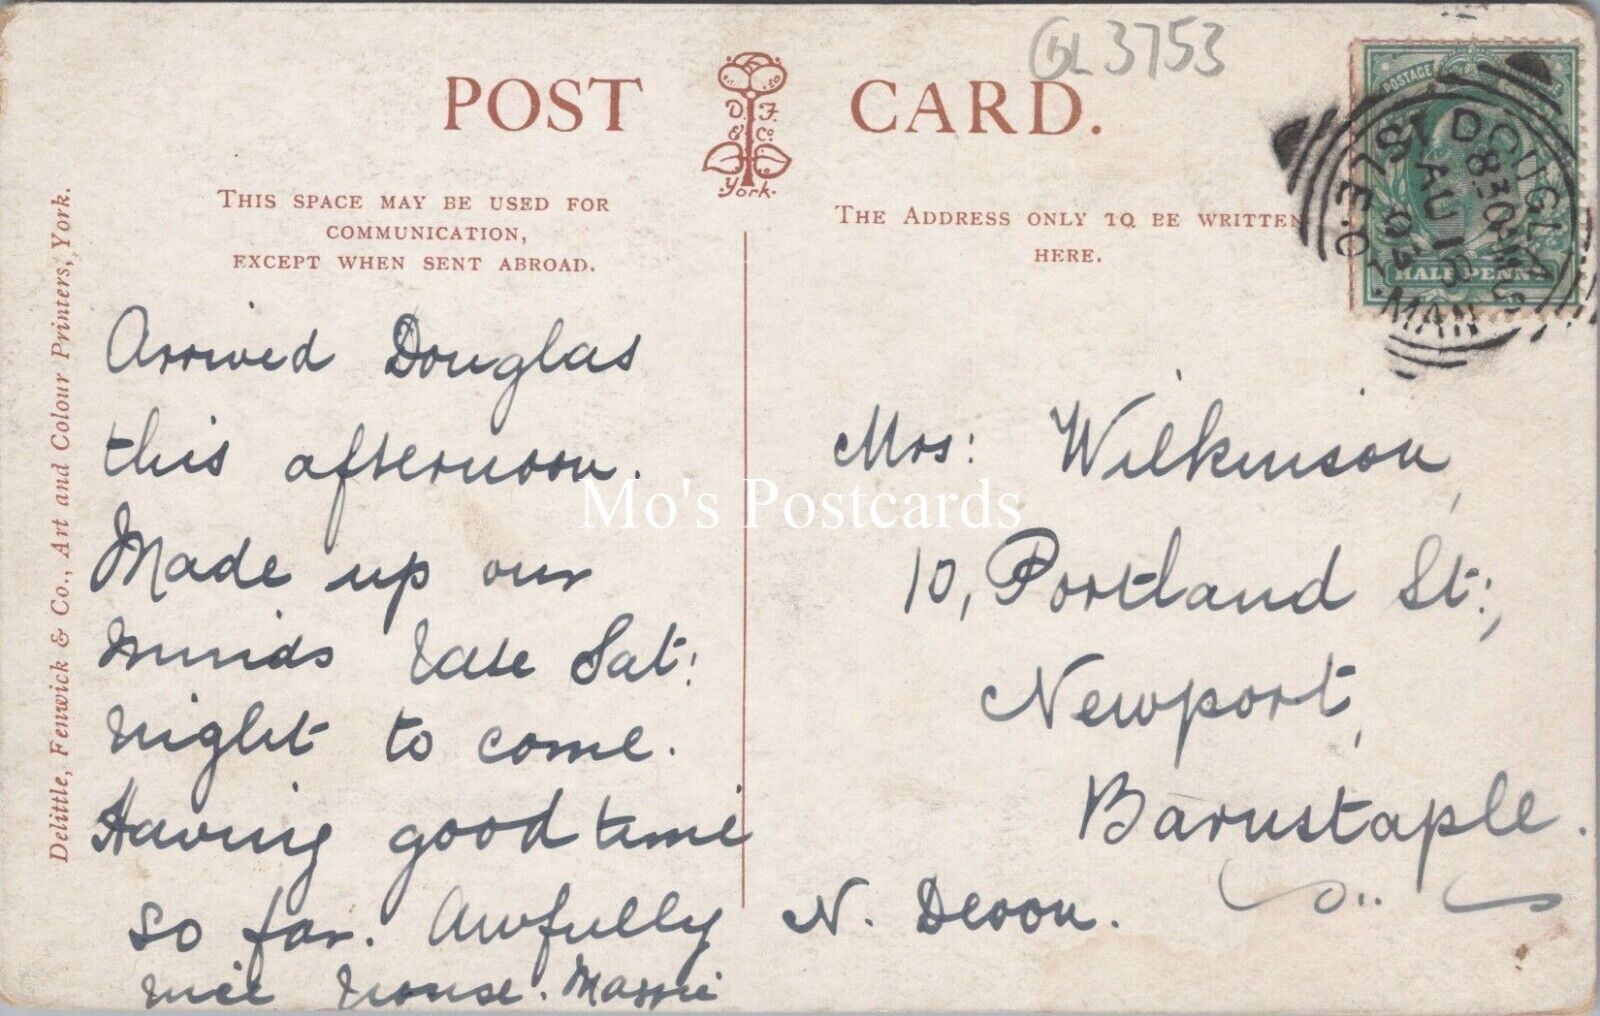 GL 3753
POST CARD.
D. F.
& Co.
York.
THIS SPACE MAY BE USED FOR
COMMUNICATION,
EXCEPT WHEN SENT ABROAD.
THE ADDRESS ONLY TO BE WRITTEN
HERE.
POSTAGE
HALFPENNY
DOUGLAS
8 30 PM
AU 16
ISLE OF MAN
Delittle, Fenwick & Co., Art and Colour Printers, York.
Arrived Douglas
this afternoon.
Made up our
minds late Sat:
night to come.
Having good time
so far. Awfully
nice house.
Mrs: Wilkinson,
10, Portland St:,
Newport,
Barnstaple.
N. Devon.
Mo's Postcards